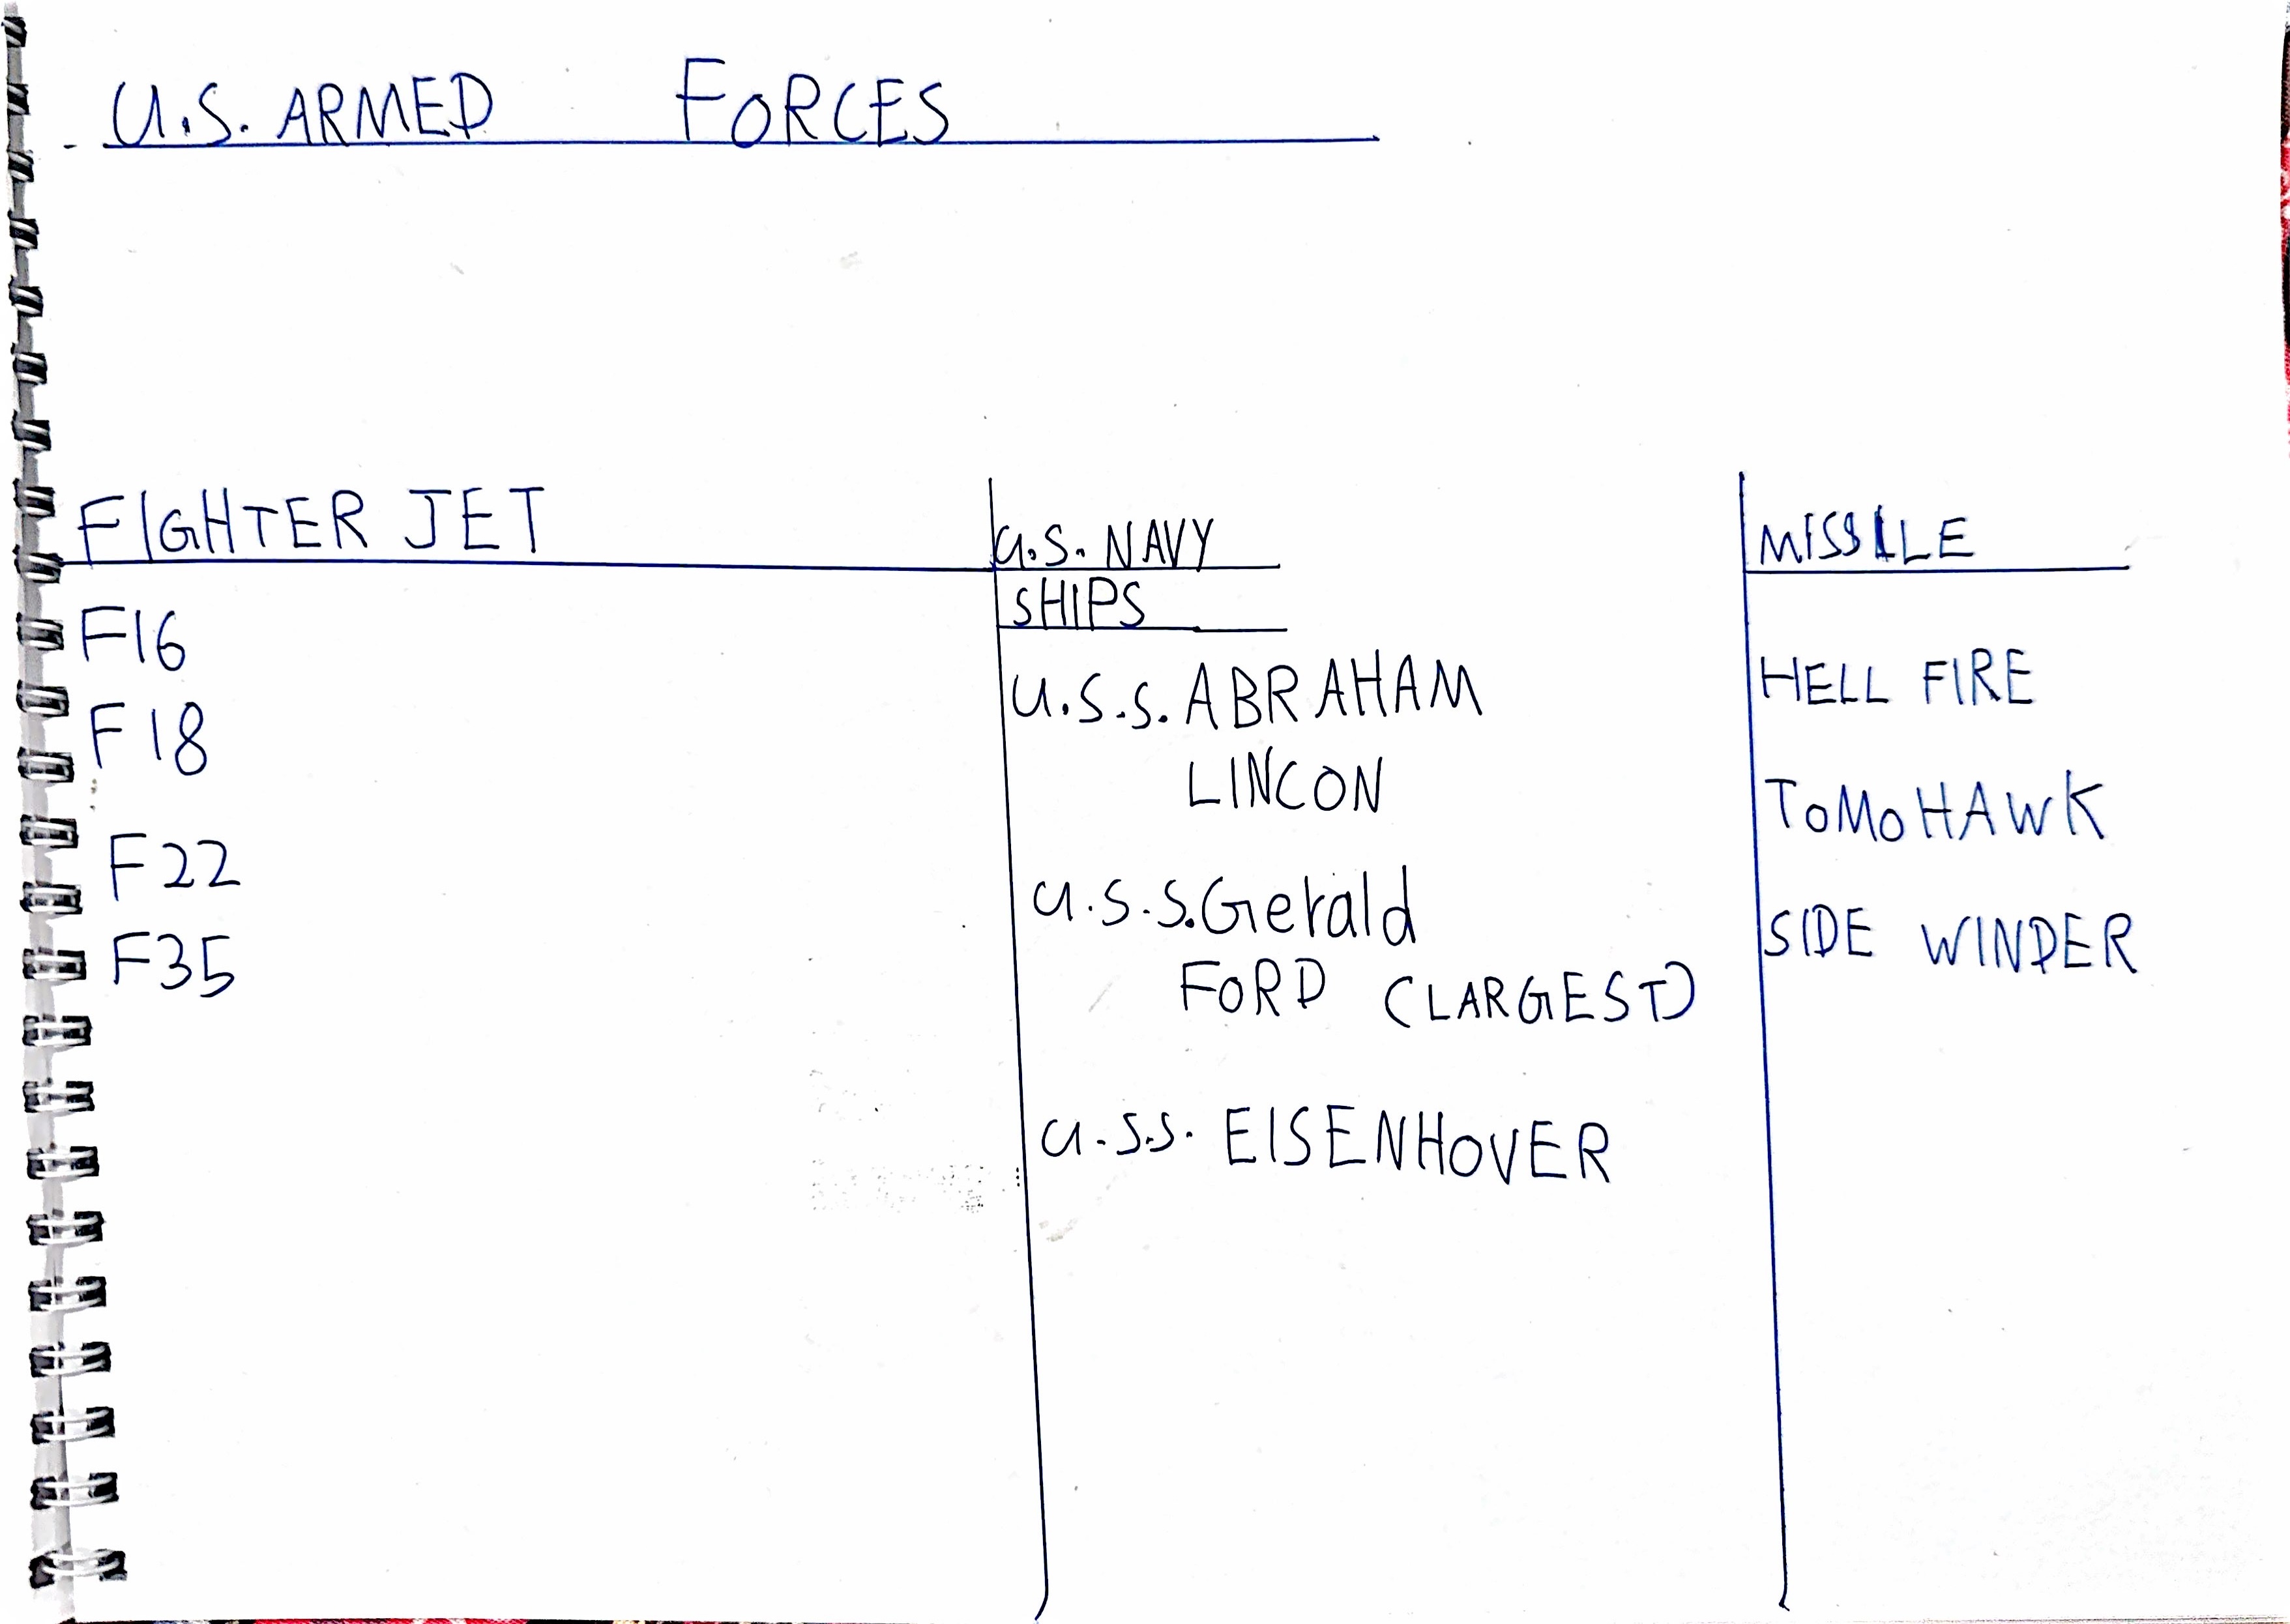 U.S. ARMED FORCES
FIGHTER JET
F16
F18
F22
F35
U.S. NAVY
SHIPS
U.S.S. ABRAHAM
LINCON
U.S.S. Gerald
FORD (LARGEST)
U.S.S. EISENHOVER
MISSILE
HELL FIRE
TOMOHAWK
SIDE WINDER